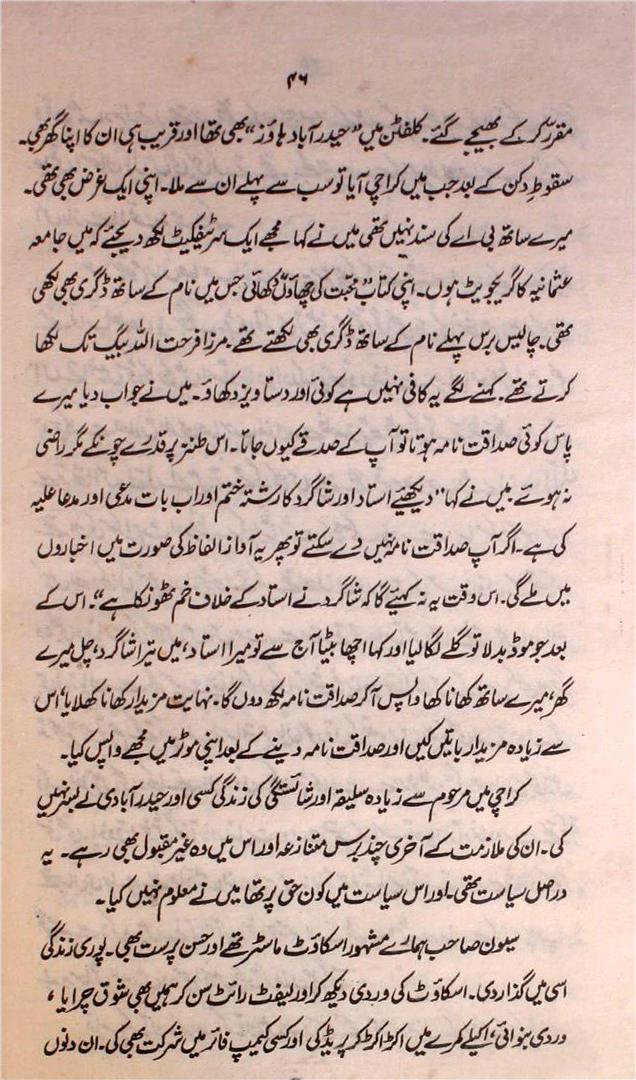 ۴۶
مقرر کر کے بھیجے گئے۔ کلفٹن میں ”حیدرآباد ہاؤز“ بھی تھا اور قریب ہی ان کا اپنا گھر بھی۔
سقوطِ دکن کے بعد جب میں کراچی آیا تو سب سے پہلے ان سے ملا۔ اپنی ایک غرض بھی تھی۔
میرے ساتھ بی اے کی سند نہیں تھی میں نے کہا مجھے ایک سرٹیفکیٹ لکھ دیجئے کہ میں جامعہ
عثمانیہ کا گریجویٹ ہوں۔ اپنی کتاب ”محبت کی چھاؤں“ دکھائی جس میں نام کے ساتھ ڈگری بھی لکھی
تھی۔ چالیس برس پہلے نام کے ساتھ ڈگری بھی لکھتے تھے۔ مرزا فرحت اللہ بیگ تک لکھا
کرتے تھے۔ کہنے لگے یہ کافی نہیں ہے کوئی اور دستاویز دکھاؤ۔ میں نے جواب دیا میرے
پاس کوئی صداقت نامہ ہوتا تو آپ کے صدقے کیوں جاتا۔ اس طنز پر قدرے چونکے مگر راضی
نہ ہوئے۔ میں نے کہا ”دیکھئیے استاد اور شاگرد کا رشتہ ختم اور اب بات مدعی اور مدعا علیہ
کی ہے۔ اگر آپ صداقت نامہ نہیں دے سکتے تو پھر یہ آواز الفاظ کی صورت میں اخباروں
میں ملے گی۔ اس وقت یہ نہ کہیئے گا کہ شاگرد نے استاد کے خلاف خم ٹھونکا ہے“۔ اس کے
بعد جو موڈ بدلا تو گلے لگا لیا اور کہا اچھا بیٹا آج سے تو میرا استاد، میں تیرا شاگرد، چل میرے
گھر، میرے ساتھ کھانا کھا واپس آکر صداقت نامہ لکھ دوں گا۔ نہایت مزیدار کھانا کھلایا، اس
سے زیادہ مزیدار باتیں کیں اور صداقت نامہ دینے کے بعد اپنی موٹر میں مجھے واپس کیا۔
کراچی میں مرحوم سے زیادہ سلیقہ اور شائستگی کی زندگی کسی اور حیدرآبادی نے بسر نہیں
کی۔ ان کی ملازمت کے آخری چند برس متنازعہ اور اس میں وہ غیر مقبول بھی رہے۔ یہ
دراصل سیاست تھی۔ اور اس سیاست میں کون حق پر تھا میں نے معلوم نہیں کیا۔
سیون صاحب ہمارے مشہور اسکاؤٹ ماسٹر تھے اور حسن پرست بھی۔ پوری زندگی
اسی میں گذار دی۔ اسکاؤٹ کی وردی دیکھ کر اور لیفٹ رائٹ سن کر ہمیں بھی شوق چرایا،
وردی بنوائی، اکیلے کمرے میں اکڑ اکڑ کر پریڈ کی اور کسی کیمپ فائر میں شرکت بھی کی۔ ان دنوں